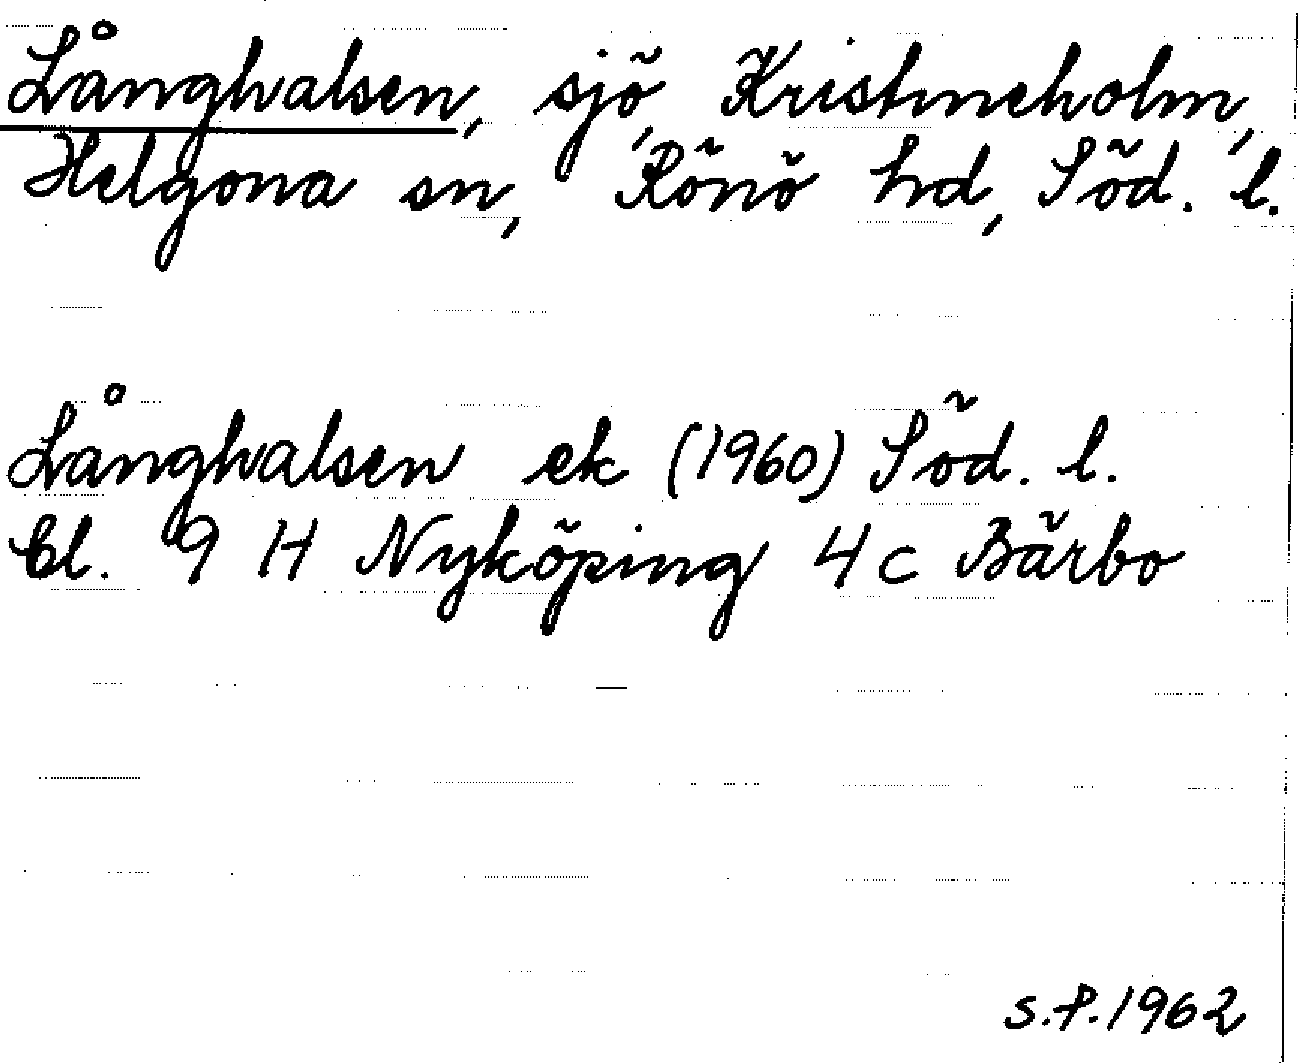 Långhalsen, sjö, Kristineholm,
Helgona sn, Rönö hd, Söd. l.
Långhalsen ek (1960) Söd. l.
bl. 9 H Nyköping 4 c Bärbo
S.P. 1962